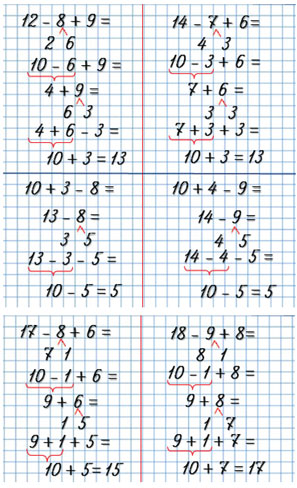 12 - 8 + 9 =
2 6
10 - 6 + 9 =
4 + 9 =
6 3
4 + 6 - 3 =
10 + 3 = 13
14 - 7 + 6 =
4 3
10 - 3 + 6 =
7 + 6 =
3 3
7 + 3 + 3 =
10 + 3 = 13
10 + 3 - 8 =
13 - 8 =
3 5
13 - 3 - 5 =
10 - 5 = 5
10 + 4 - 9 =
14 - 9 =
4 5
14 - 4 - 5 =
10 - 5 = 5
17 - 8 + 6 =
7 1
10 - 1 + 6 =
9 + 6 =
1 5
9 + 1 + 5 =
10 + 5 = 15
18 - 9 + 8 =
8 1
10 - 1 + 8 =
9 + 8 =
1 7
9 + 1 + 7 =
10 + 7 = 17